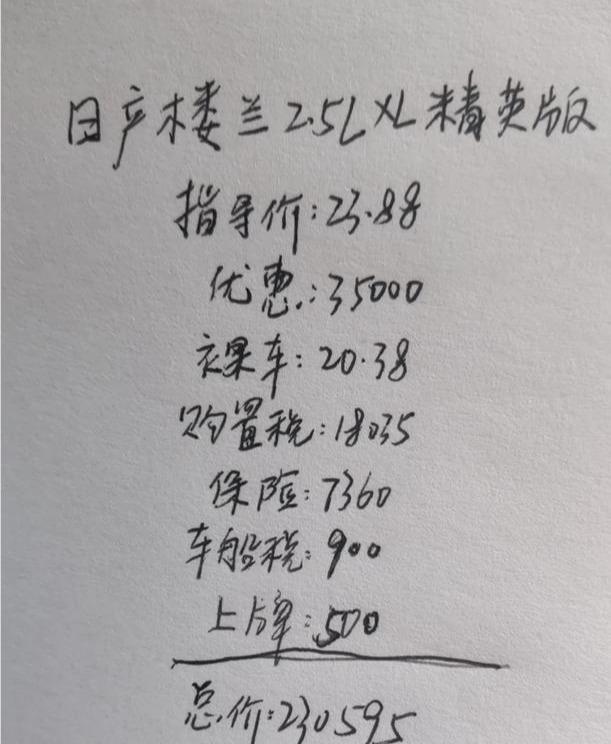 日产楼兰2.5L XL精英版
指导价:23.88
优惠:35000
裸车:20.38
购置税:18035
保险:7360
车船税:900
上牌:500
总价:230595